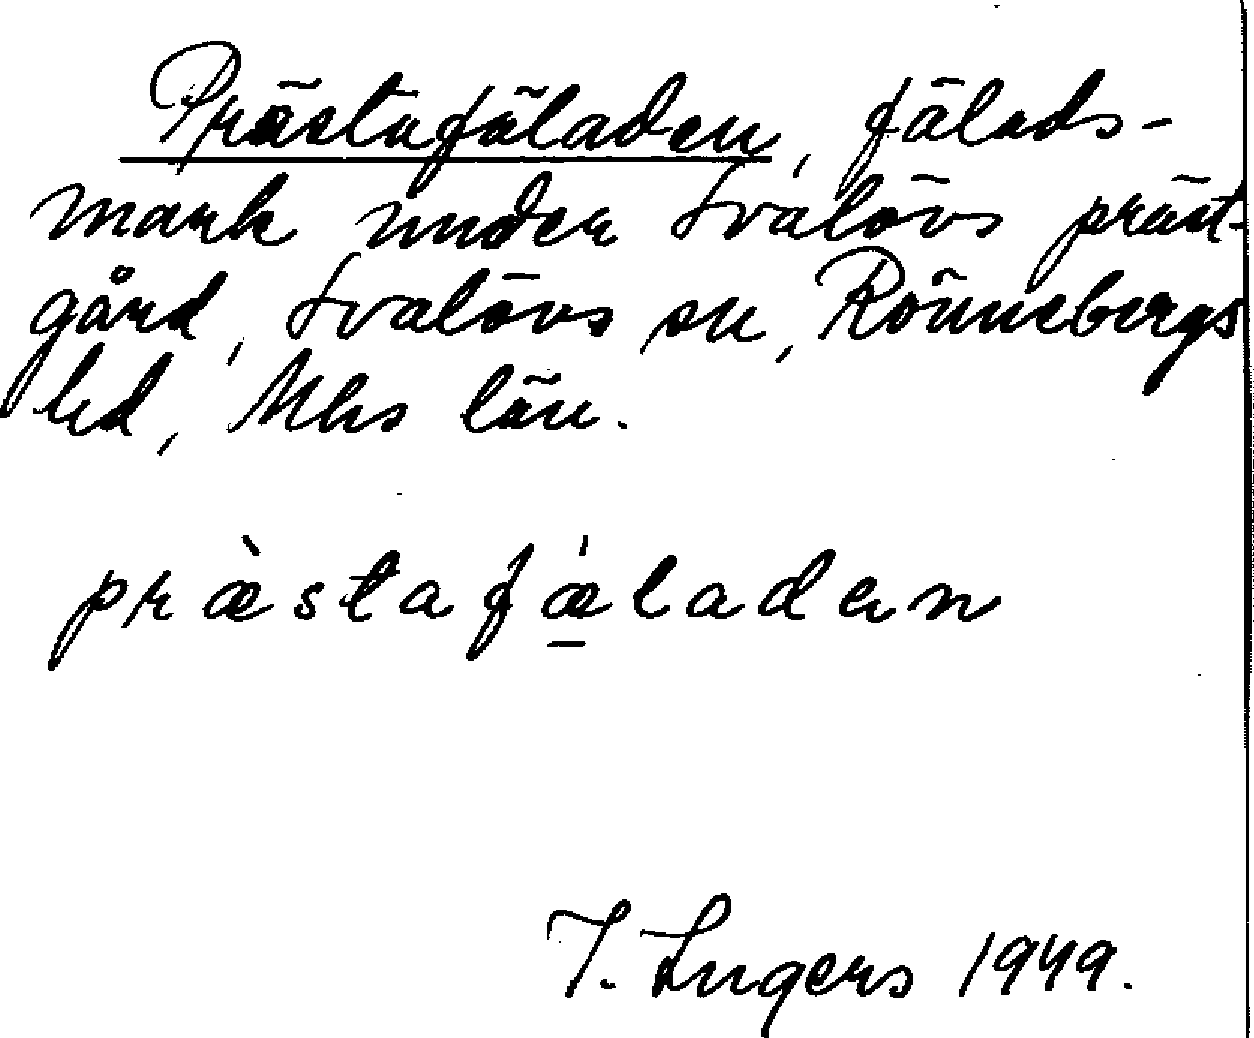 Prästafäladen, fälads-
mark under Svalövs präst-
gård, Svalövs sn, Rönnebergs
hd, Mhs län.
præ̀stafǽ̱laden
I. Ingers 1949.